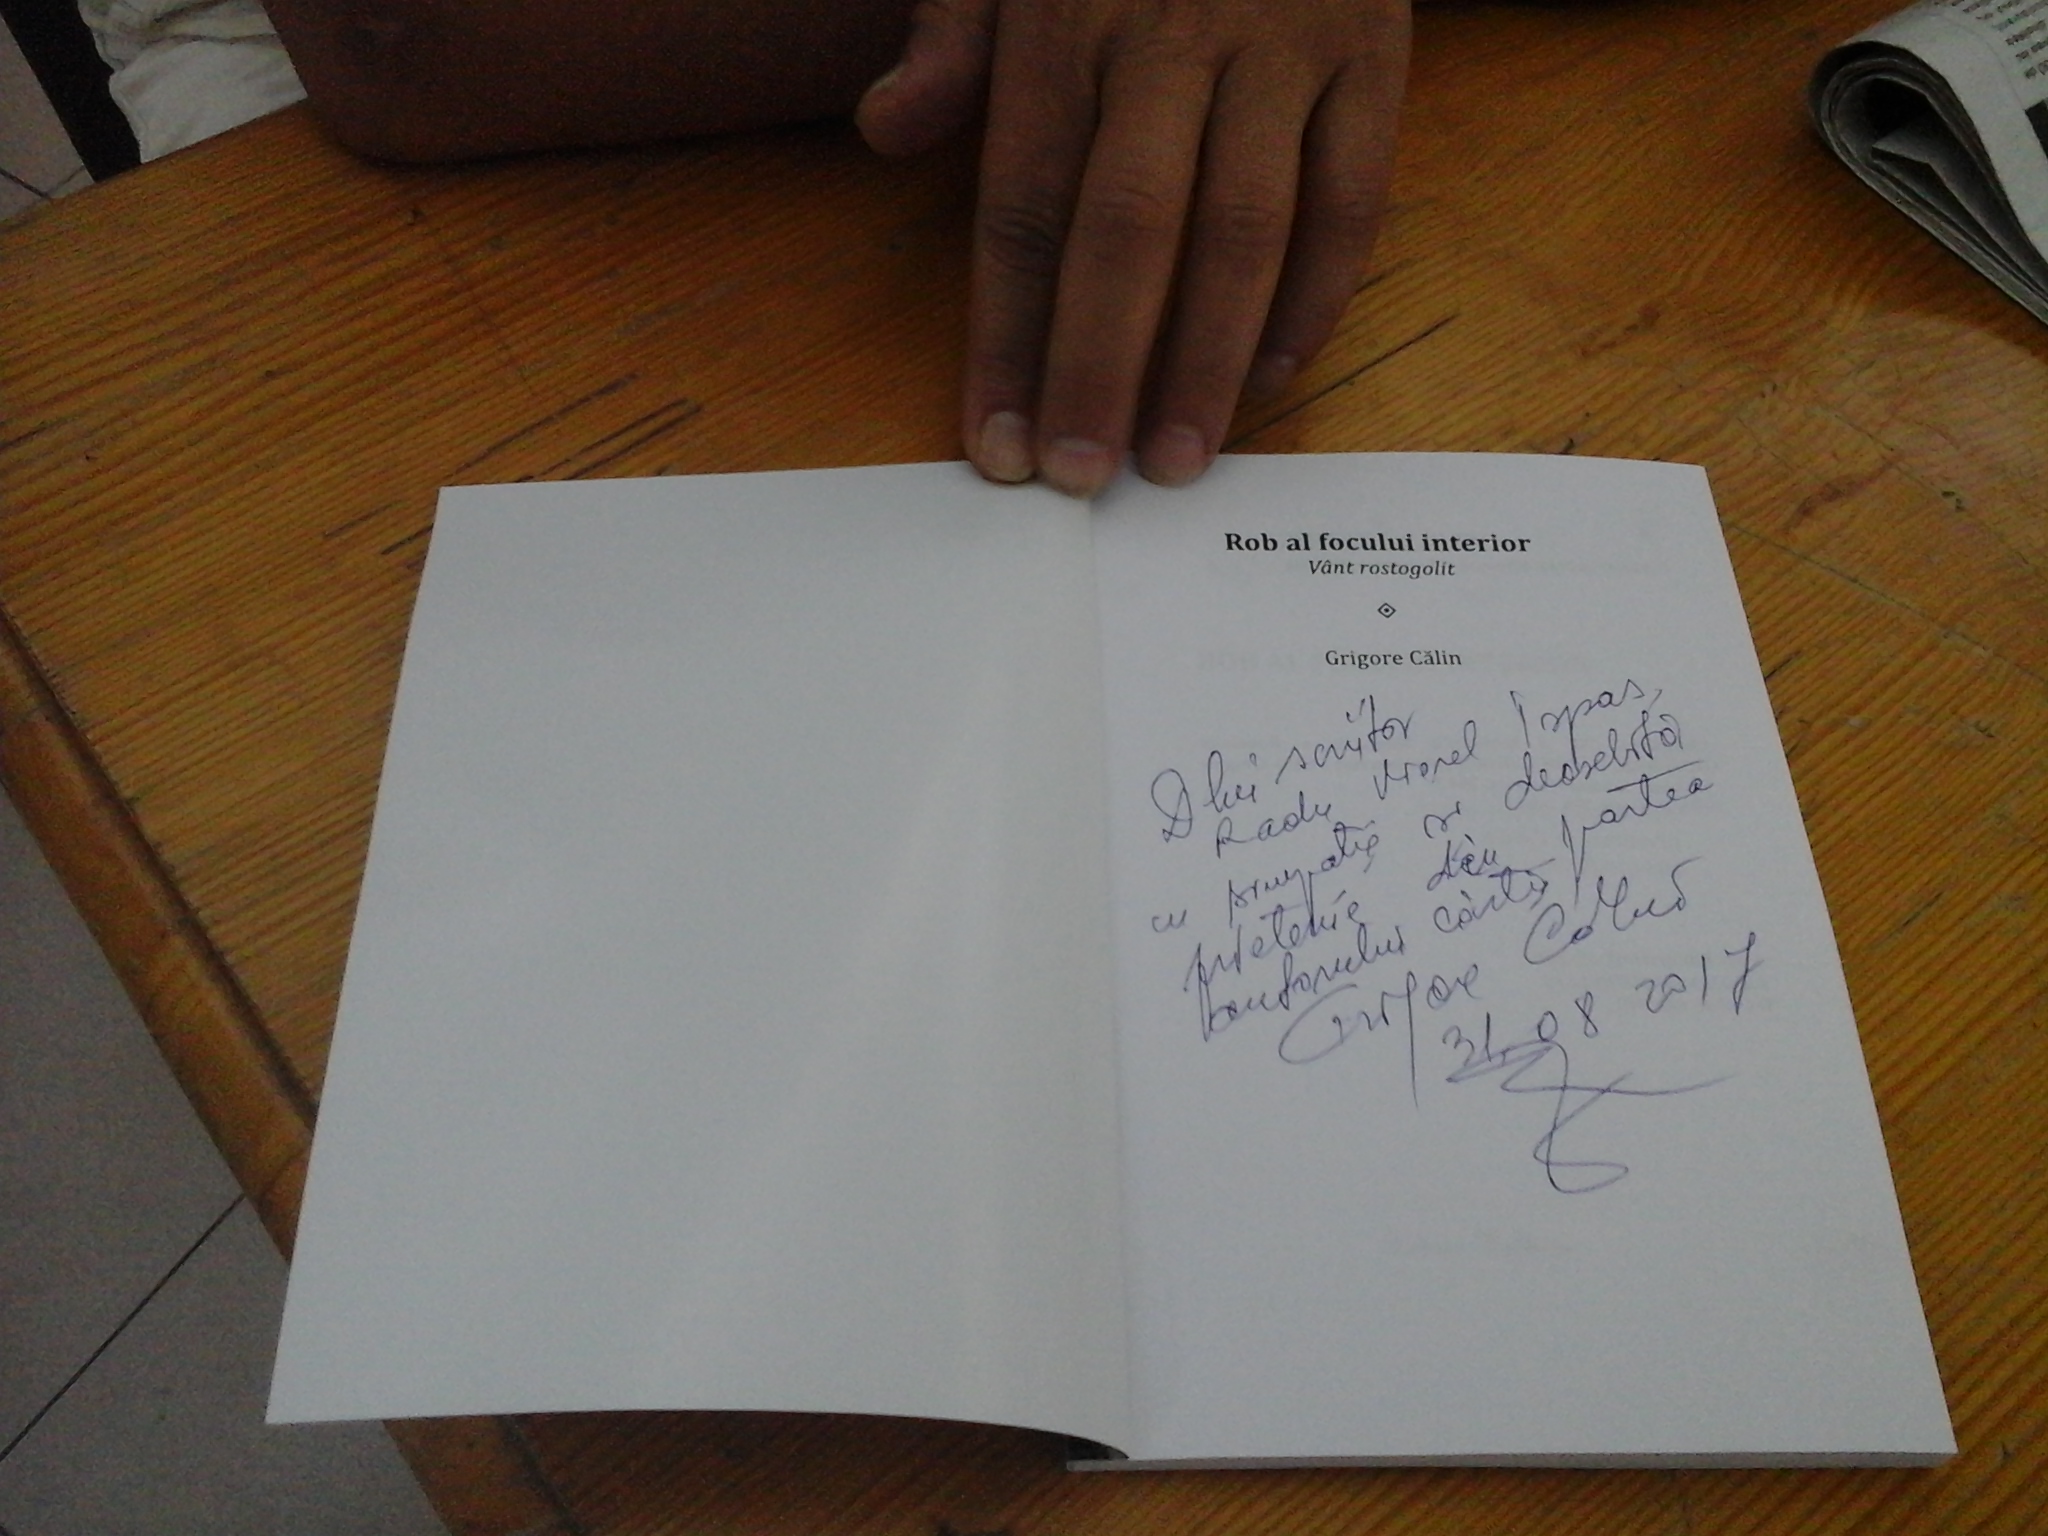 Rob al focului interior
Vânt rostogolit
Grigore Călin
Dlui scriitor
Radu Viorel Ispas,
cu simpatie și deosebită
prietenie din partea
autorului cărții
Grigore Călin
31.08 2017